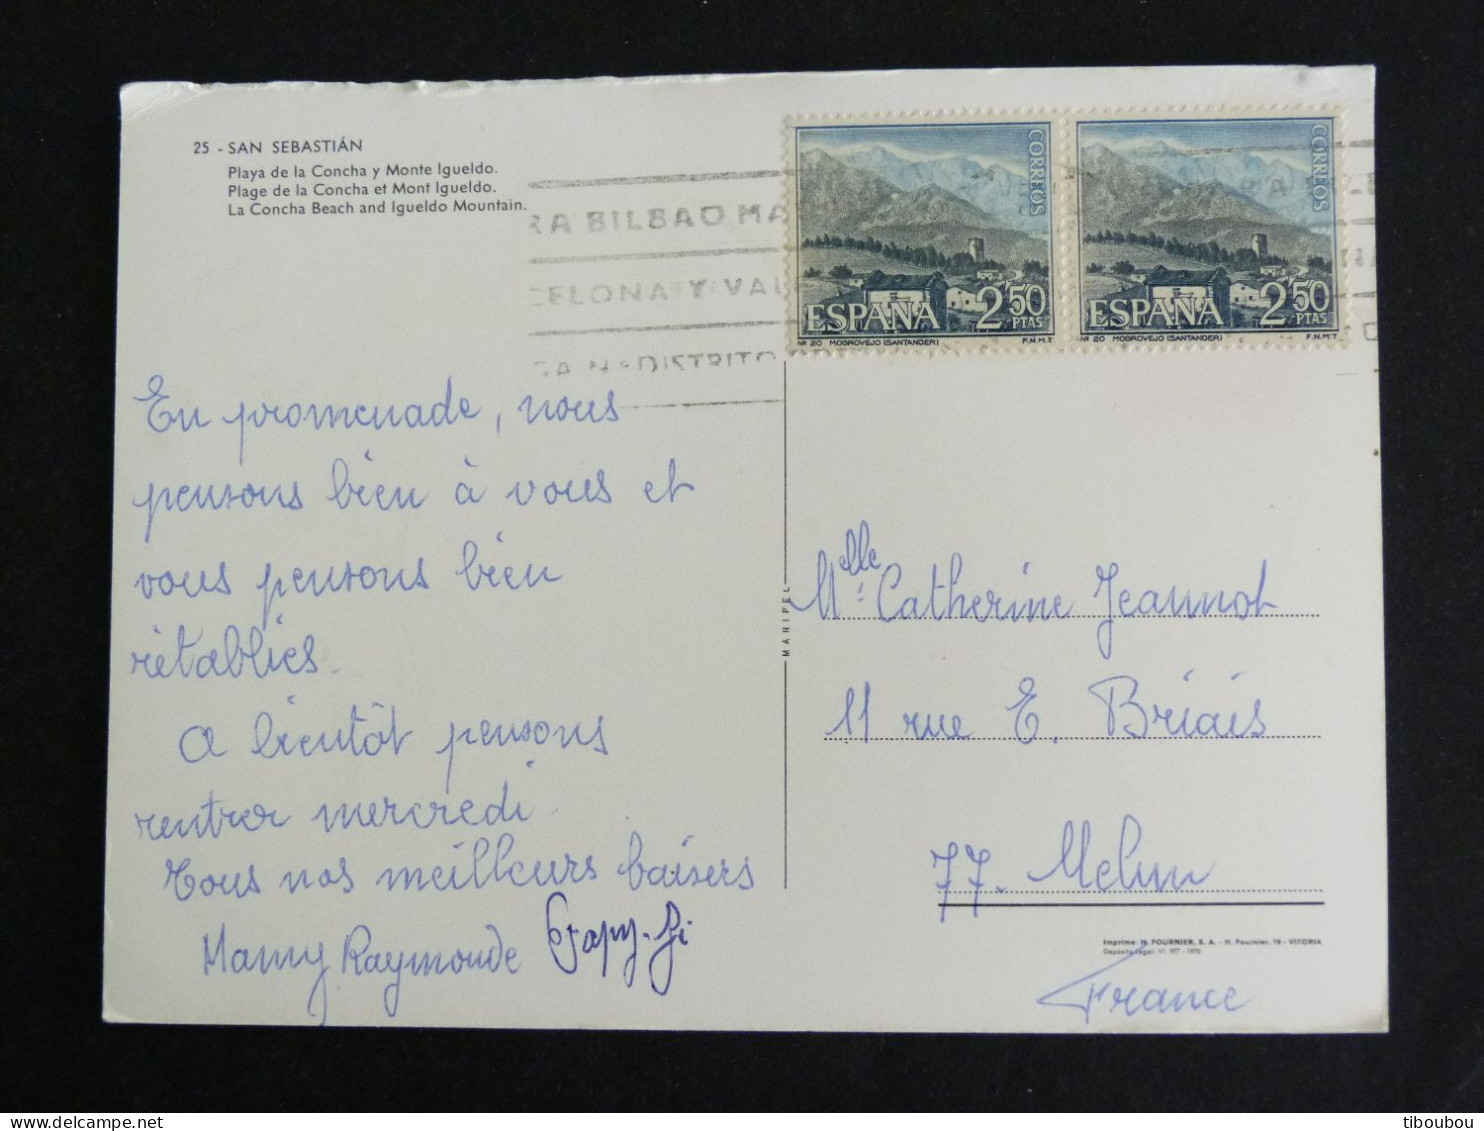 25 - SAN SEBASTIÁN
Playa de la Concha y Monte Igueldo.
Plage de la Concha et Mont Igueldo.
La Concha Beach and Igueldo Mountain.
RA BILBAO MA
CELONA Y VAL
Nº DISTRITO
CORREOS
ESPAÑA 2'50
PTAS
Nº 20 MOGROVEJO (SANTANDER) F.N.M.T.
CORREOS
ESPAÑA 2'50
PTAS
Nº 20 MOGROVEJO (SANTANDER) F.N.M.T.
En promenade, nous
pensons bien à vous et
vous pensons bien
rétablies.
A bientôt pensons
rentrer mercredi.
Tous nos meilleurs baisers
Mamy Raymonde
MANIPEL
Melle Catherine Jeannot
11 rue E. Briais
77. Melun
France
Imprime: H. FOURNIER, S. A. - H. Fournier, 19 - VITORIA
Depósito legal: VI. 977 - 1970
tiboubou